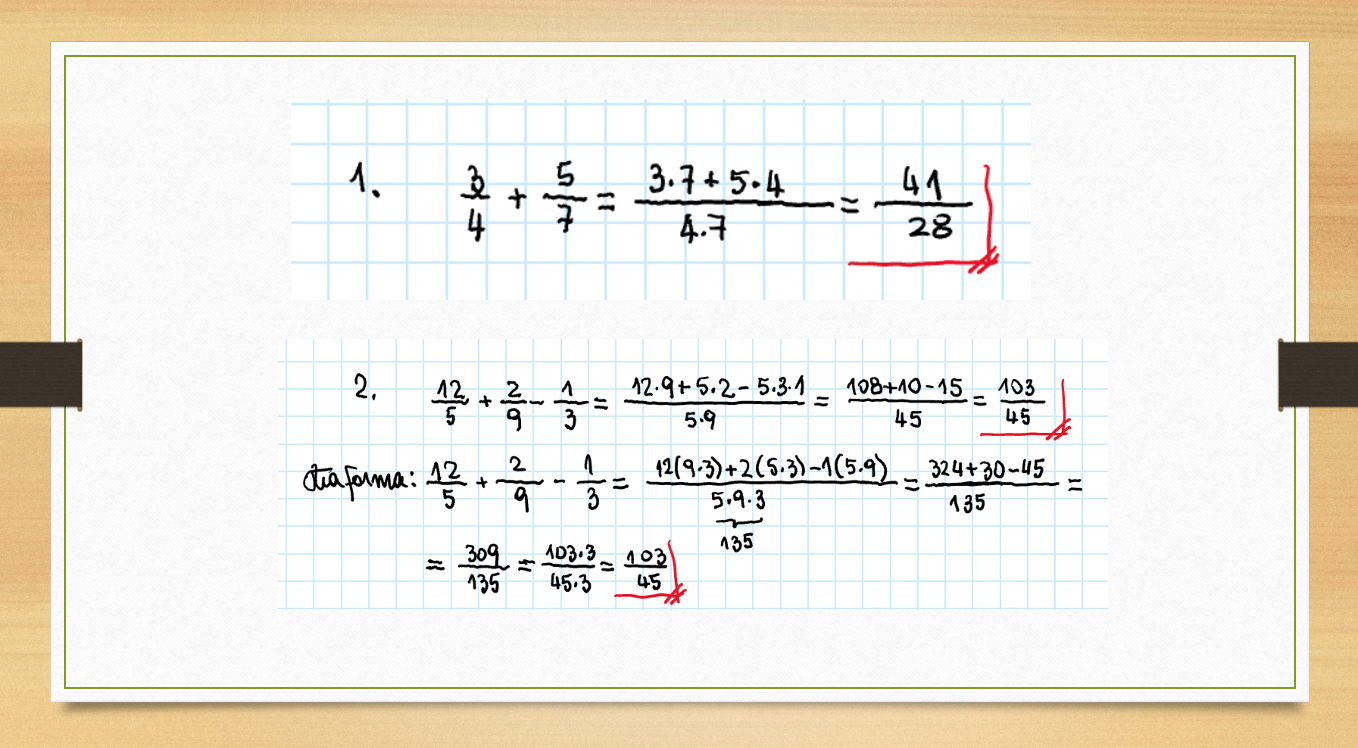 1. 3/4 + 5/7 = (3.7+5.4)/(4.7) = 41/28
2. 12/5 + 2/9 - 1/3 = (12.9+5.2-5.3.1)/(5.9) = (108+10-15)/45 = 103/45
Otra forma: 12/5 + 2/9 - 1/3 = (12(9.3)+2(5.3)-1(5.9))/(5.9.3) = (324+30-45)/135 =
135
= 309/135 = (103.3)/(45.3) = 103/45